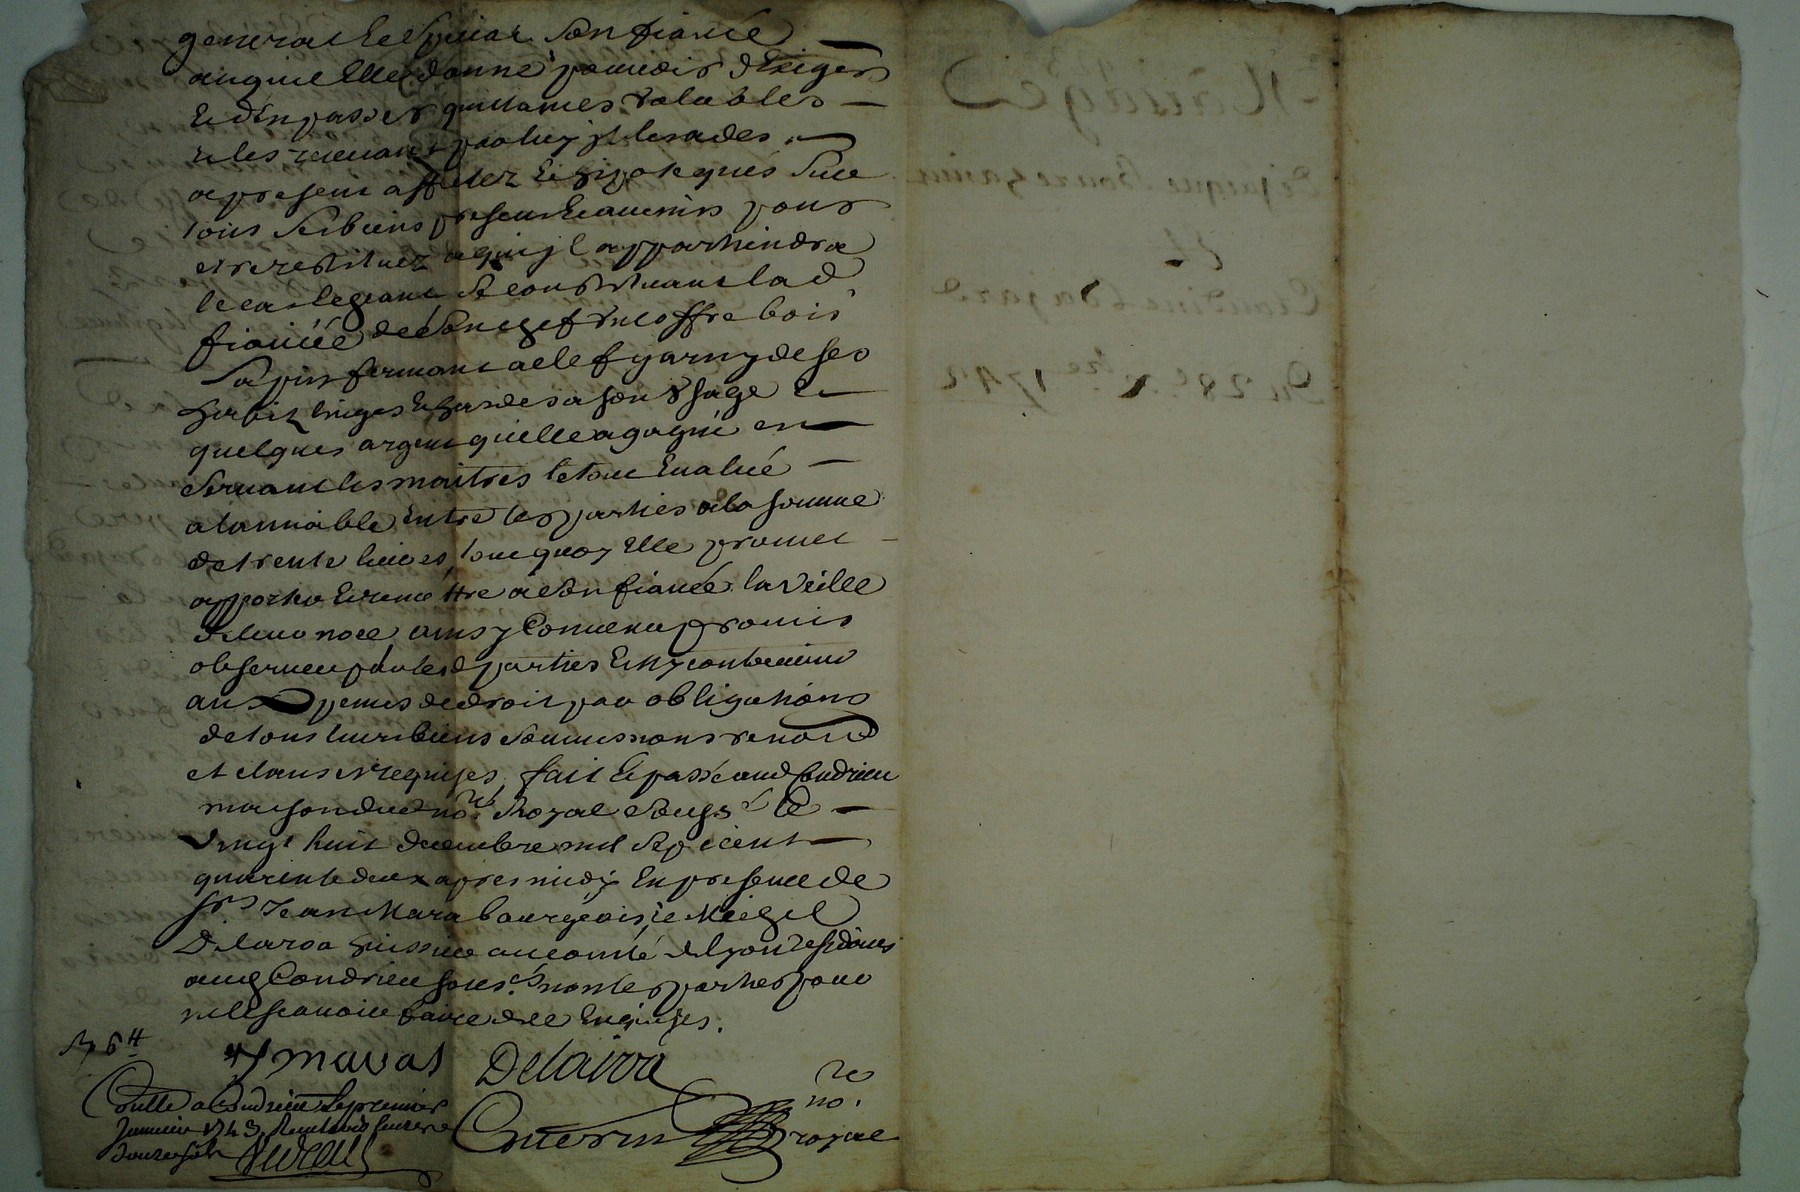 general & special son fiancé
auquel elle donne pouvoir d'exiger
& d'en passer quittances valables
& les recevant par luy il les a des
a present affectez & hipotequés sur
tous ses biens presents & a venir pour
estre restituez a qui il appartiendra
le cas legeant se constituant lad
fiancée de son chef un coffre bois
sapin fermant a clef garny de ses
habits linges & hardes a son usage &
quelques argent quelle a gagné en
servant les maitres le tout evalué
a lamiable entre les parties a la somme
de trente livres, tout quoy elle promet
apporter & remettre a son fiancé la veille
de leur noce ainsy convenu promis
observer par lesd parties & ny contrevenir
aux peines de droit par obligations
de tous leurs biens soumissions renonc
et clauses requises fait & passé aud Condrieu
maison du not.re Royal sousg.é le
vingt huit decembre mil sept cent
quarante deux apres midy en presence de
S.r Jean Mara bourgeois, & Michel
Delaroa huissier au comté de Lyon residants
aud Condrieu sous.és non les parties pour
ne le scavoir faire de ce enquises.
R 6 tt
maras Delaroa
Con.tlle a Condrieu le premier
Janvier 1743, Receu
douze sols
re
no.
royal
Mariage
De jaque
Et
Claudine
Du 28.e X.bre 1742